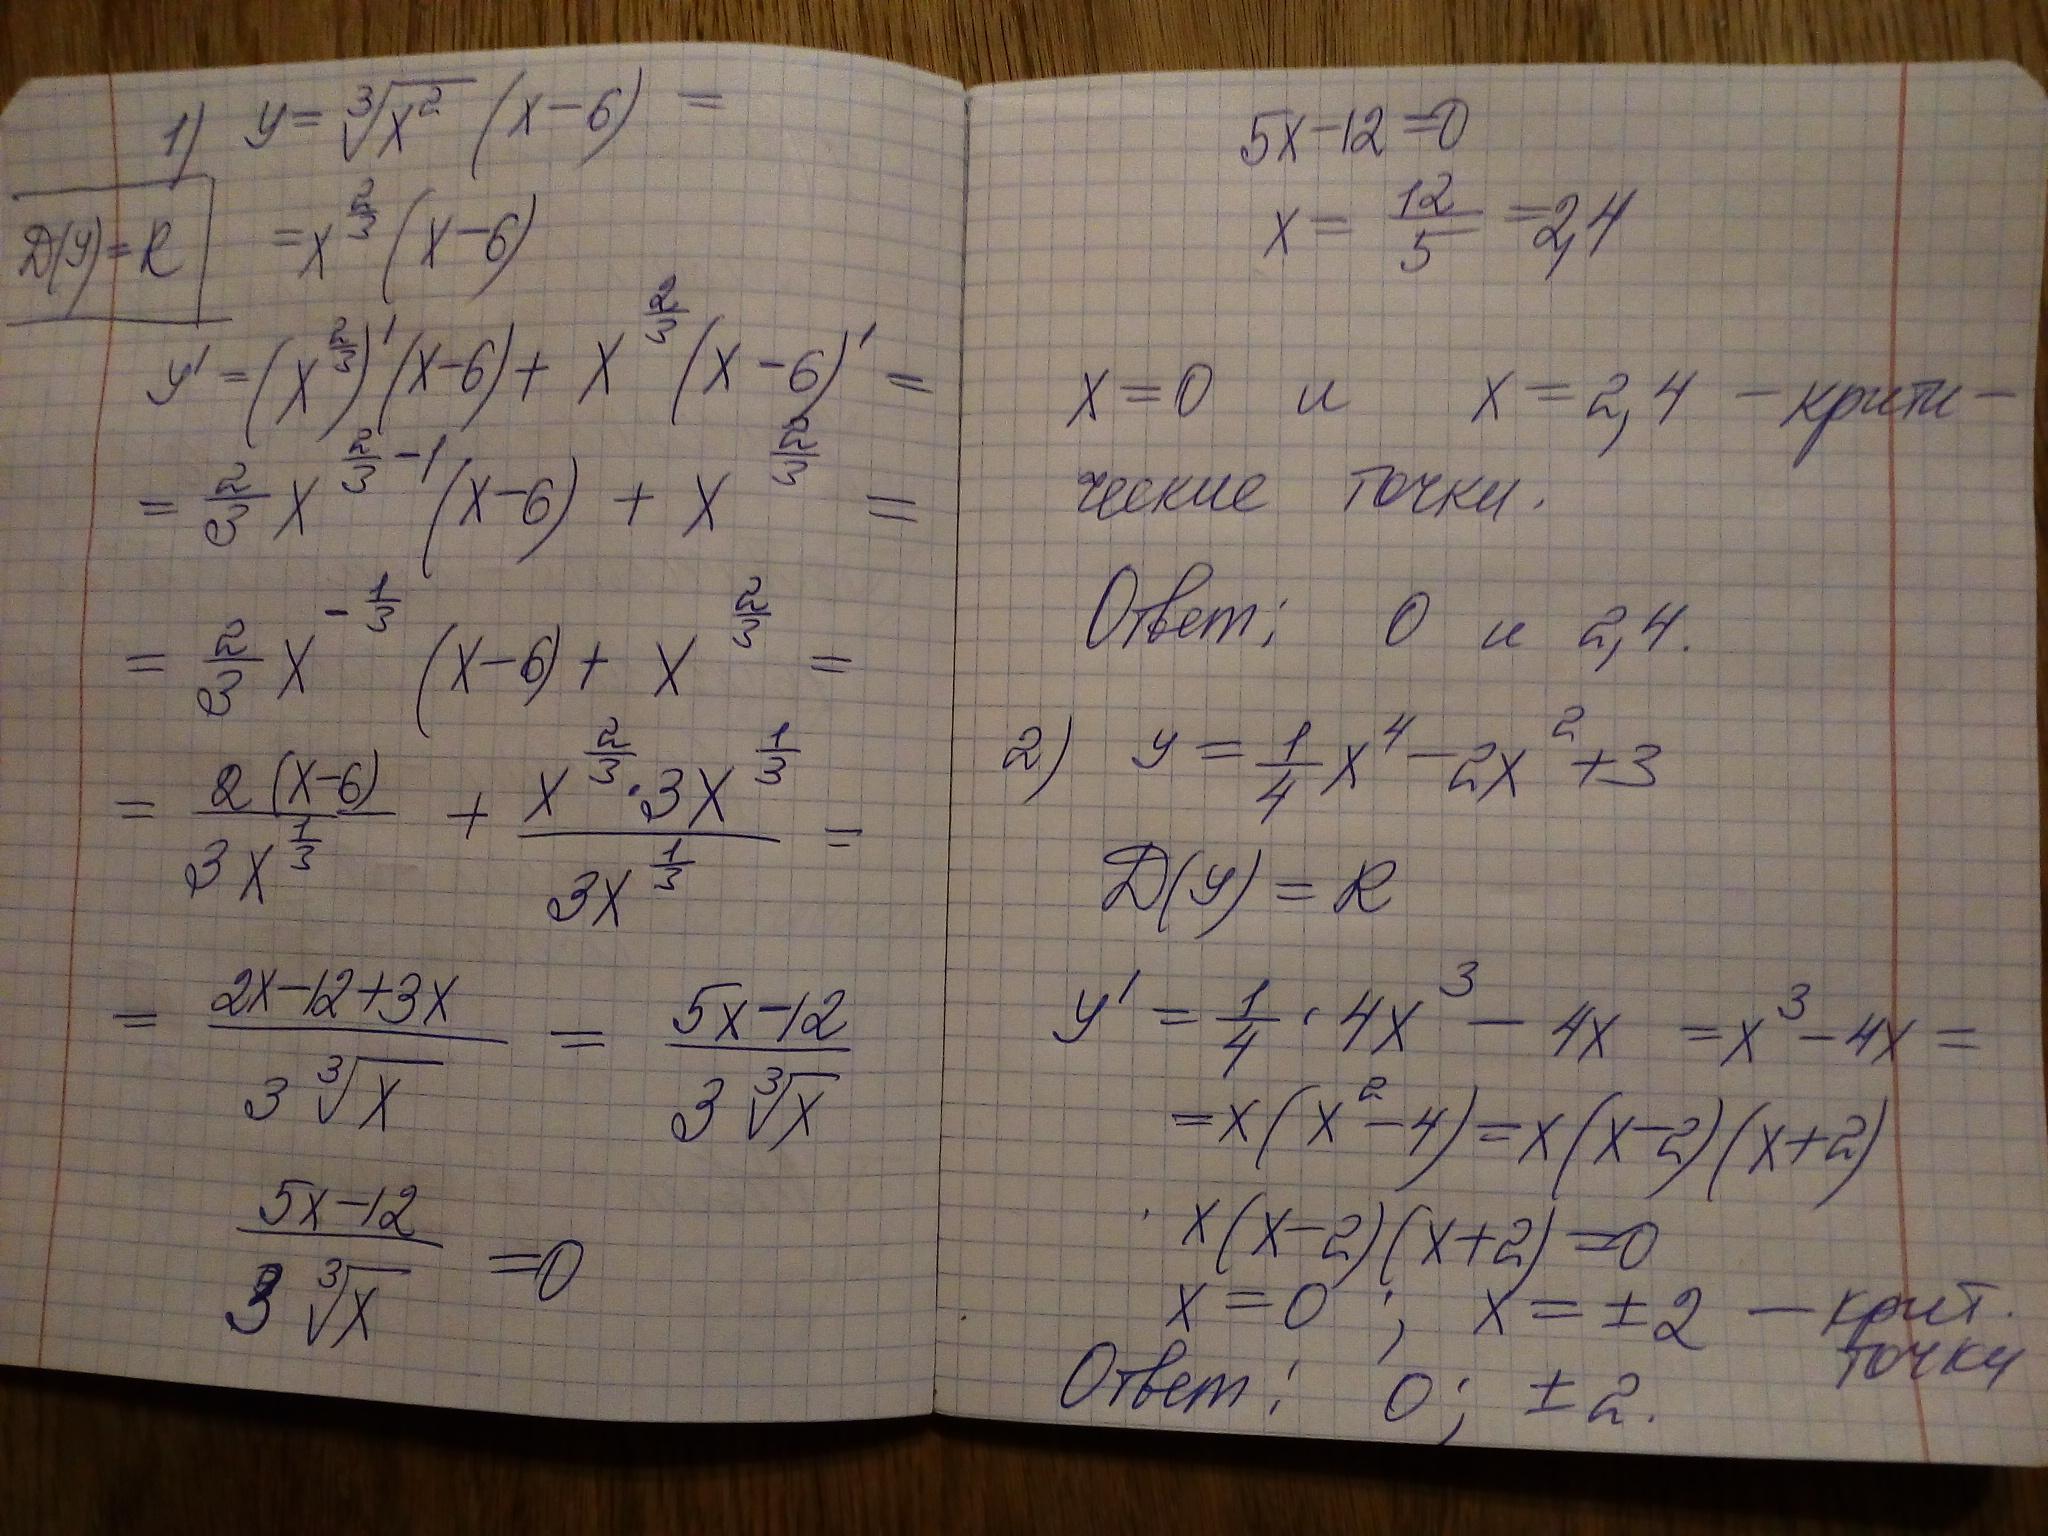 1) y = ∛x² (x-6) =
D(y) = R
= x^(2/3) (x-6)
y' = (x^(2/3))' (x-6) + x^(2/3) (x-6)' =
= 2/3 x^(2/3 - 1) (x-6) + x^(2/3) =
= 2/3 x^(-1/3) (x-6) + x^(2/3) =
= 2(x-6)/(3x^(1/3)) + (x^(2/3) · 3x^(1/3))/(3x^(1/3)) =
= (2x-12+3x)/(3∛x) = (5x-12)/(3∛x)
(5x-12)/(3∛x) = 0
5x-12=0
x = 12/5 = 2,4
x = 0 и x = 2,4 - крити-
ческие точки.
Ответ: 0 и 2,4.
2) y = 1/4 x⁴ - 2x² + 3
D(y) = R
y' = 1/4 · 4x³ - 4x = x³ - 4x =
= x(x²-4) = x(x-2)(x+2)
x(x-2)(x+2) = 0
x = 0 ; x = ±2 - крит.
точки
Ответ: 0; ±2.